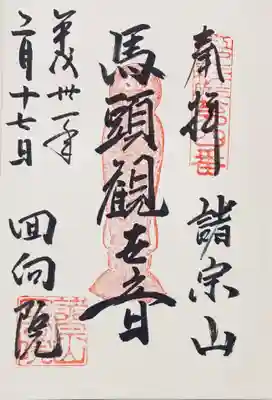 奉拝
諸宗山
馬頭観世音
平成卅一年
二月十七日
回向院